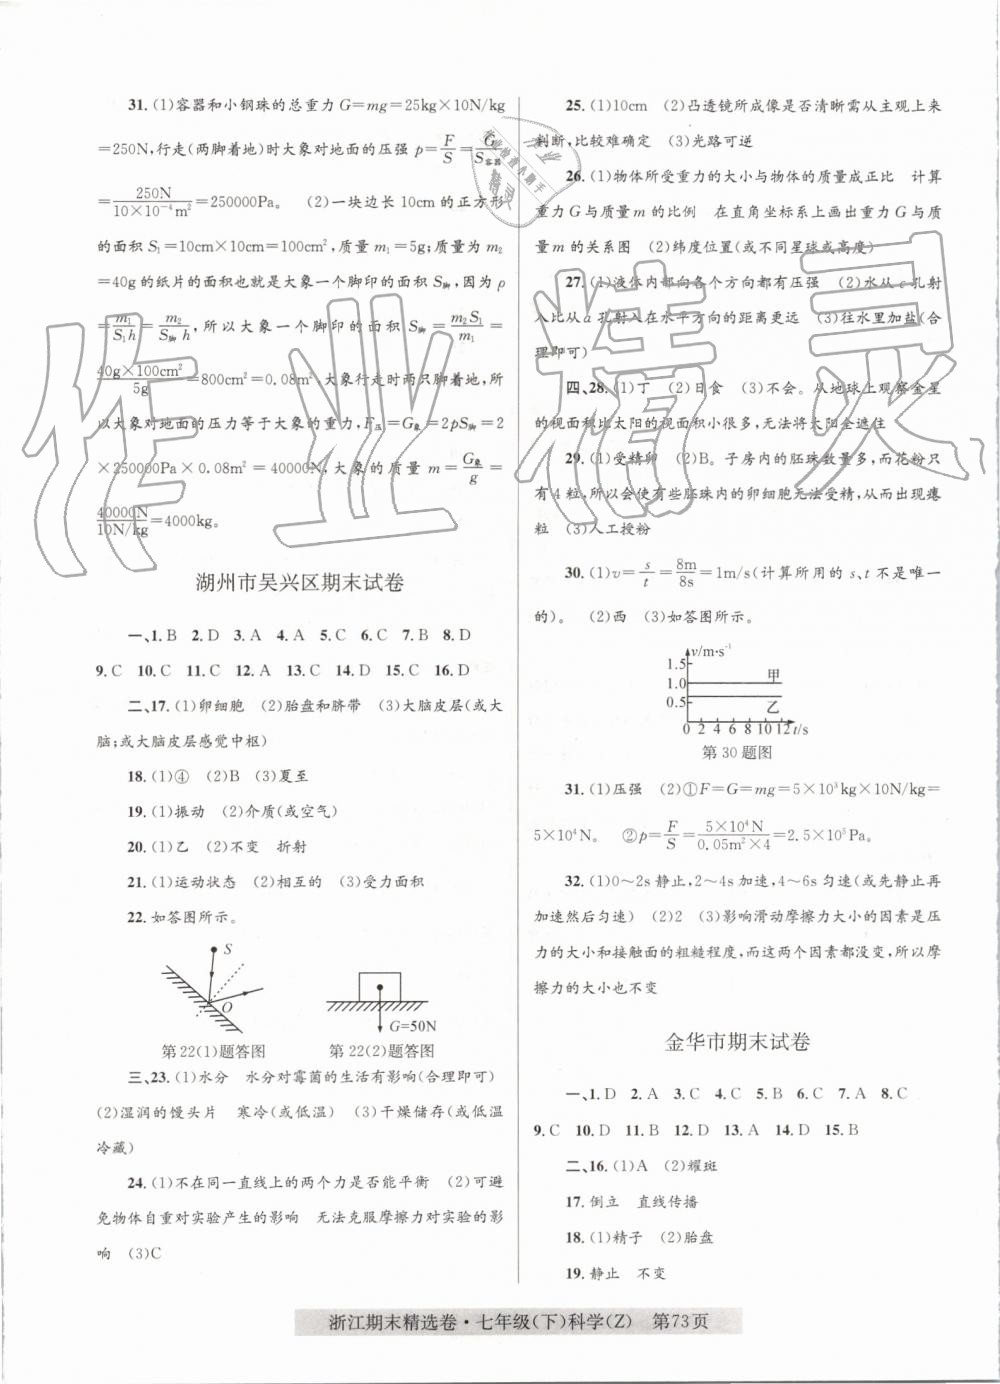 31. (1)容器和小钢珠的总重力 G=mg=25kg×10N/kg
=250N,行走(两脚着地)时大象对地面的压强 p=F/S=G/S容器
=250N/(10×10⁻⁴m²)=250000Pa。 (2)一块边长 10cm 的正方形
的面积 S₁=10cm×10cm=100cm²,质量 m₁=5g;质量为 m₂
=40g 的纸片的面积也就是大象一个脚印的面积 S脚,因为 ρ
=m₁/(S₁h)=m₂/(S脚h),所以大象一个脚印的面积 S脚=m₂S₁/m₁
=40g×100cm²/5g=800cm²=0.08m²,大象行走时两只脚着地,所
以大象对地面的压力等于大象的重力,F压=G象=2pS脚=2
×250000Pa×0.08m²=40000N,大象的质量 m=G象/g
=40000N/(10N/kg)=4000kg。
湖州市吴兴区期末试卷
一、1. B 2. D 3. A 4. A 5. C 6. C 7. B 8. D
9. C 10. C 11. C 12. A 13. C 14. D 15. C 16. D
二、17. (1)卵细胞 (2)胎盘和脐带 (3)大脑皮层(或大
脑;或大脑皮层感觉中枢)
18. (1)④ (2)B (3)夏至
19. (1)振动 (2)介质(或空气)
20. (1)乙 (2)不变 折射
21. (1)运动状态 (2)相互的 (3)受力面积
22. 如答图所示。
S
O
G=50N
第 22(1)题答图 第 22(2)题答图
三、23. (1)水分 水分对霉菌的生活有影响(合理即可)
(2)湿润的馒头片 寒冷(或低温) (3)干燥储存(或低温
冷藏)
24. (1)不在同一直线上的两个力是否能平衡 (2)可避
免物体自重对实验产生的影响 无法克服摩擦力对实验的影
响 (3)C
25. (1)10cm (2)凸透镜所成像是否清晰需从主观上来
判断,比较难确定 (3)光路可逆
26. (1)物体所受重力的大小与物体的质量成正比 计算
重力 G 与质量 m 的比例 在直角坐标系上画出重力 G 与质
量 m 的关系图 (2)纬度位置(或不同星球或高度)
27. (1)液体内部向各个方向都有压强 (2)水从 c 孔射
入比从 a 孔射入在水平方向的距离更远 (3)往水里加盐(合
理即可)
四、28. (1)丁 (2)日食 (3)不会。从地球上观察金星
的视面积比太阳的视面积小很多,无法将太阳全遮住
29. (1)受精卵 (2)B。子房内的胚珠数量多,而花粉只
有 4 粒,所以会使有些胚珠内的卵细胞无法受精,从而出现瘪
粒 (3)人工授粉
30. (1)v=s/t=8m/8s=1m/s(计算所用的 s、t 不是唯一
的)。 (2)西 (3)如答图所示。
v/m·s⁻¹
1.5
1.0
0.5
甲
乙
0 2 4 6 8 10 12 t/s
第 30 题图
31. (1)压强 (2)①F=G=mg=5×10³kg×10N/kg=
5×10⁴N。 ②p=F/S=5×10⁴N/(0.05m²×4)=2.5×10⁵Pa。
32. (1)0~2s 静止,2~4s 加速,4~6s 匀速(或先静止再
加速然后匀速) (2)2 (3)影响滑动摩擦力大小的因素是压
力的大小和接触面的粗糙程度,而这两个因素都没变,所以摩
擦力的大小也不变
金华市期末试卷
一、1. D 2. A 3. C 4. D 5. B 6. C 7. A 8. C
9. C 10. D 11. B 12. D 13. A 14. D 15. B
二、16. (1)A (2)耀斑
17. 倒立 直线传播
18. (1)精子 (2)胎盘
19. 静止 不变
浙江期末精选卷·七年级(下)科学(Z) 第73页
作业精灵